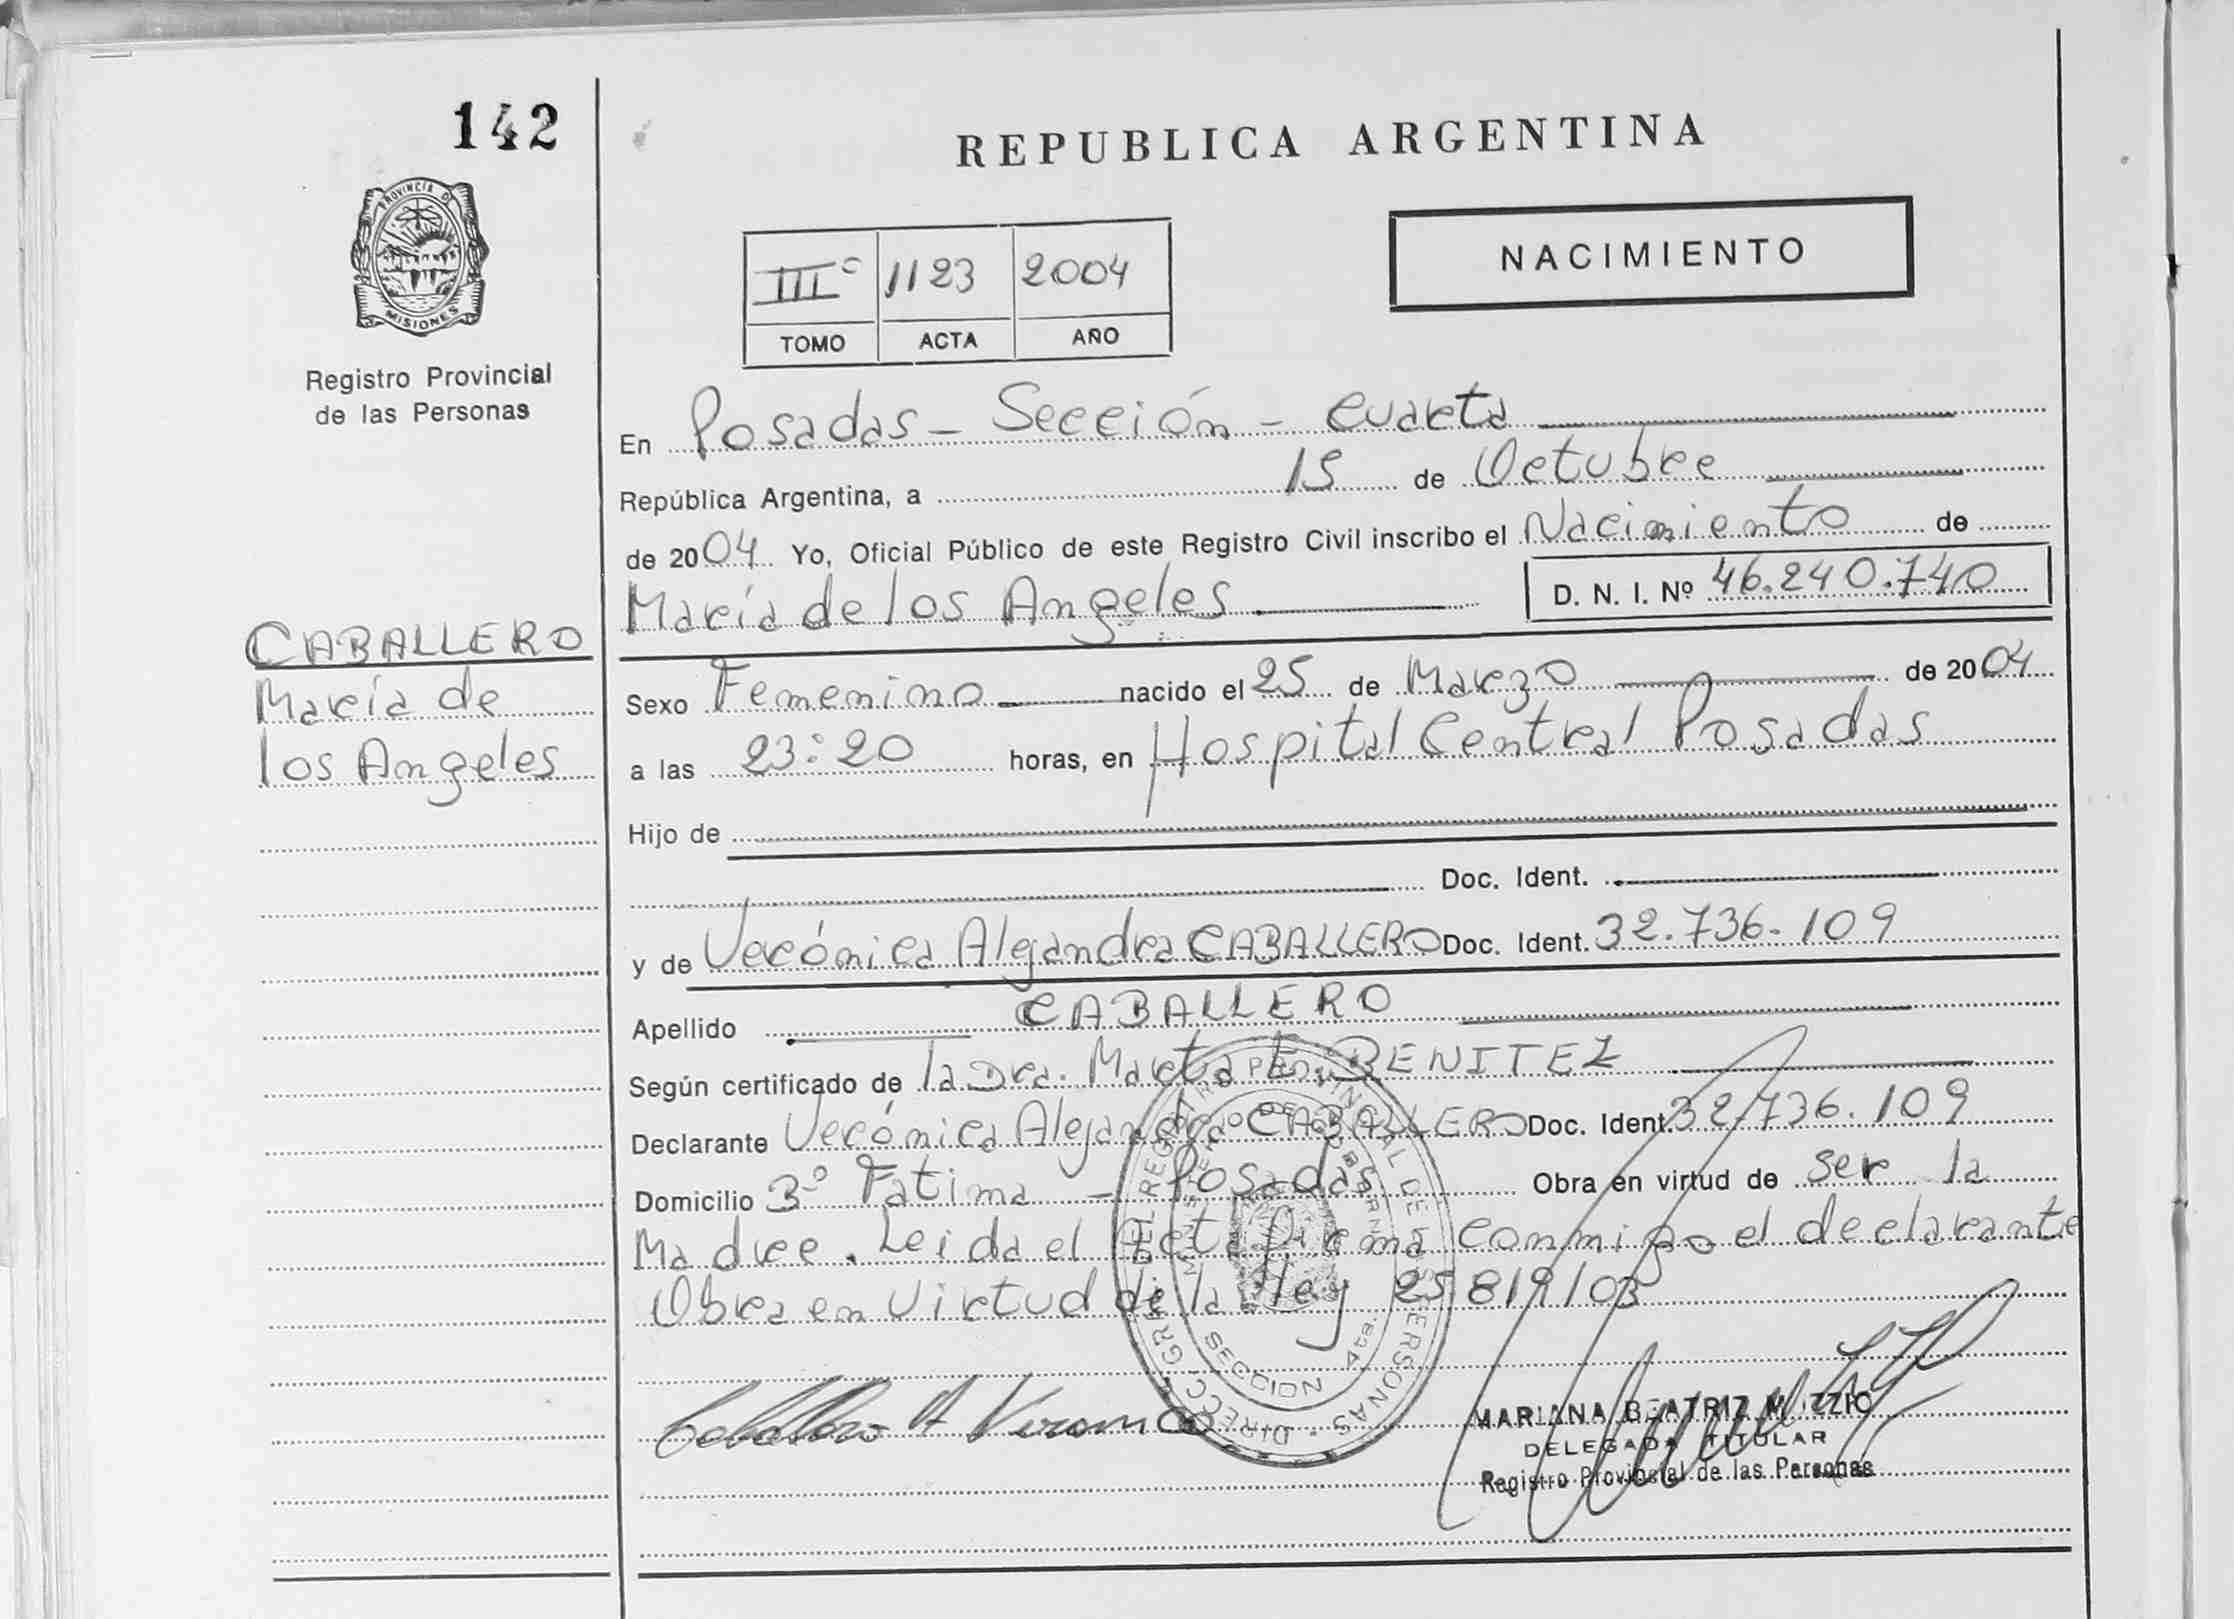 142
PROVINCIA DE
MISIONES
Registro Provincial
de las Personas
CABALLERO
María de
los Angeles
REPUBLICA ARGENTINA
NACIMIENTO
III° 1123 2004
TOMO ACTA AÑO
En Posadas - Sección - Cuarta
República Argentina, a 15 de Octubre
de 2004 Yo, Oficial Público de este Registro Civil inscribo el Nacimiento de
María de los Angeles D. N. I. Nº 46.240.740
Sexo Femenino nacido el 25 de Marzo de 2004
a las 23:20 horas, en Hospital Central Posadas
Hijo de
Doc. Ident.
y de Verónica Alejandra CABALLERO Doc. Ident. 32.736.109
Apellido CABALLERO
Según certificado de la Dra. Marta E. BENITEZ
Declarante Verónica Alejandra CABALLERO Doc. Ident. 32.736.109
Domicilio B° Fatima - Posadas Obra en virtud de ser la
Madre. Leida el Acta Firma conmigo el declarante
Obra en Virtud de la ley 25819/03
DIRECC. GRAL. DEL REGISTRO PROVINCIAL DE LAS PERSONAS
MINISTERIO DE GOBIERNO
SECCION 4ta.
Caballero A Veronica
MARIANA BEATRIZ MUZZIO
DELEGADA TITULAR
Registro Provincial de las Personas